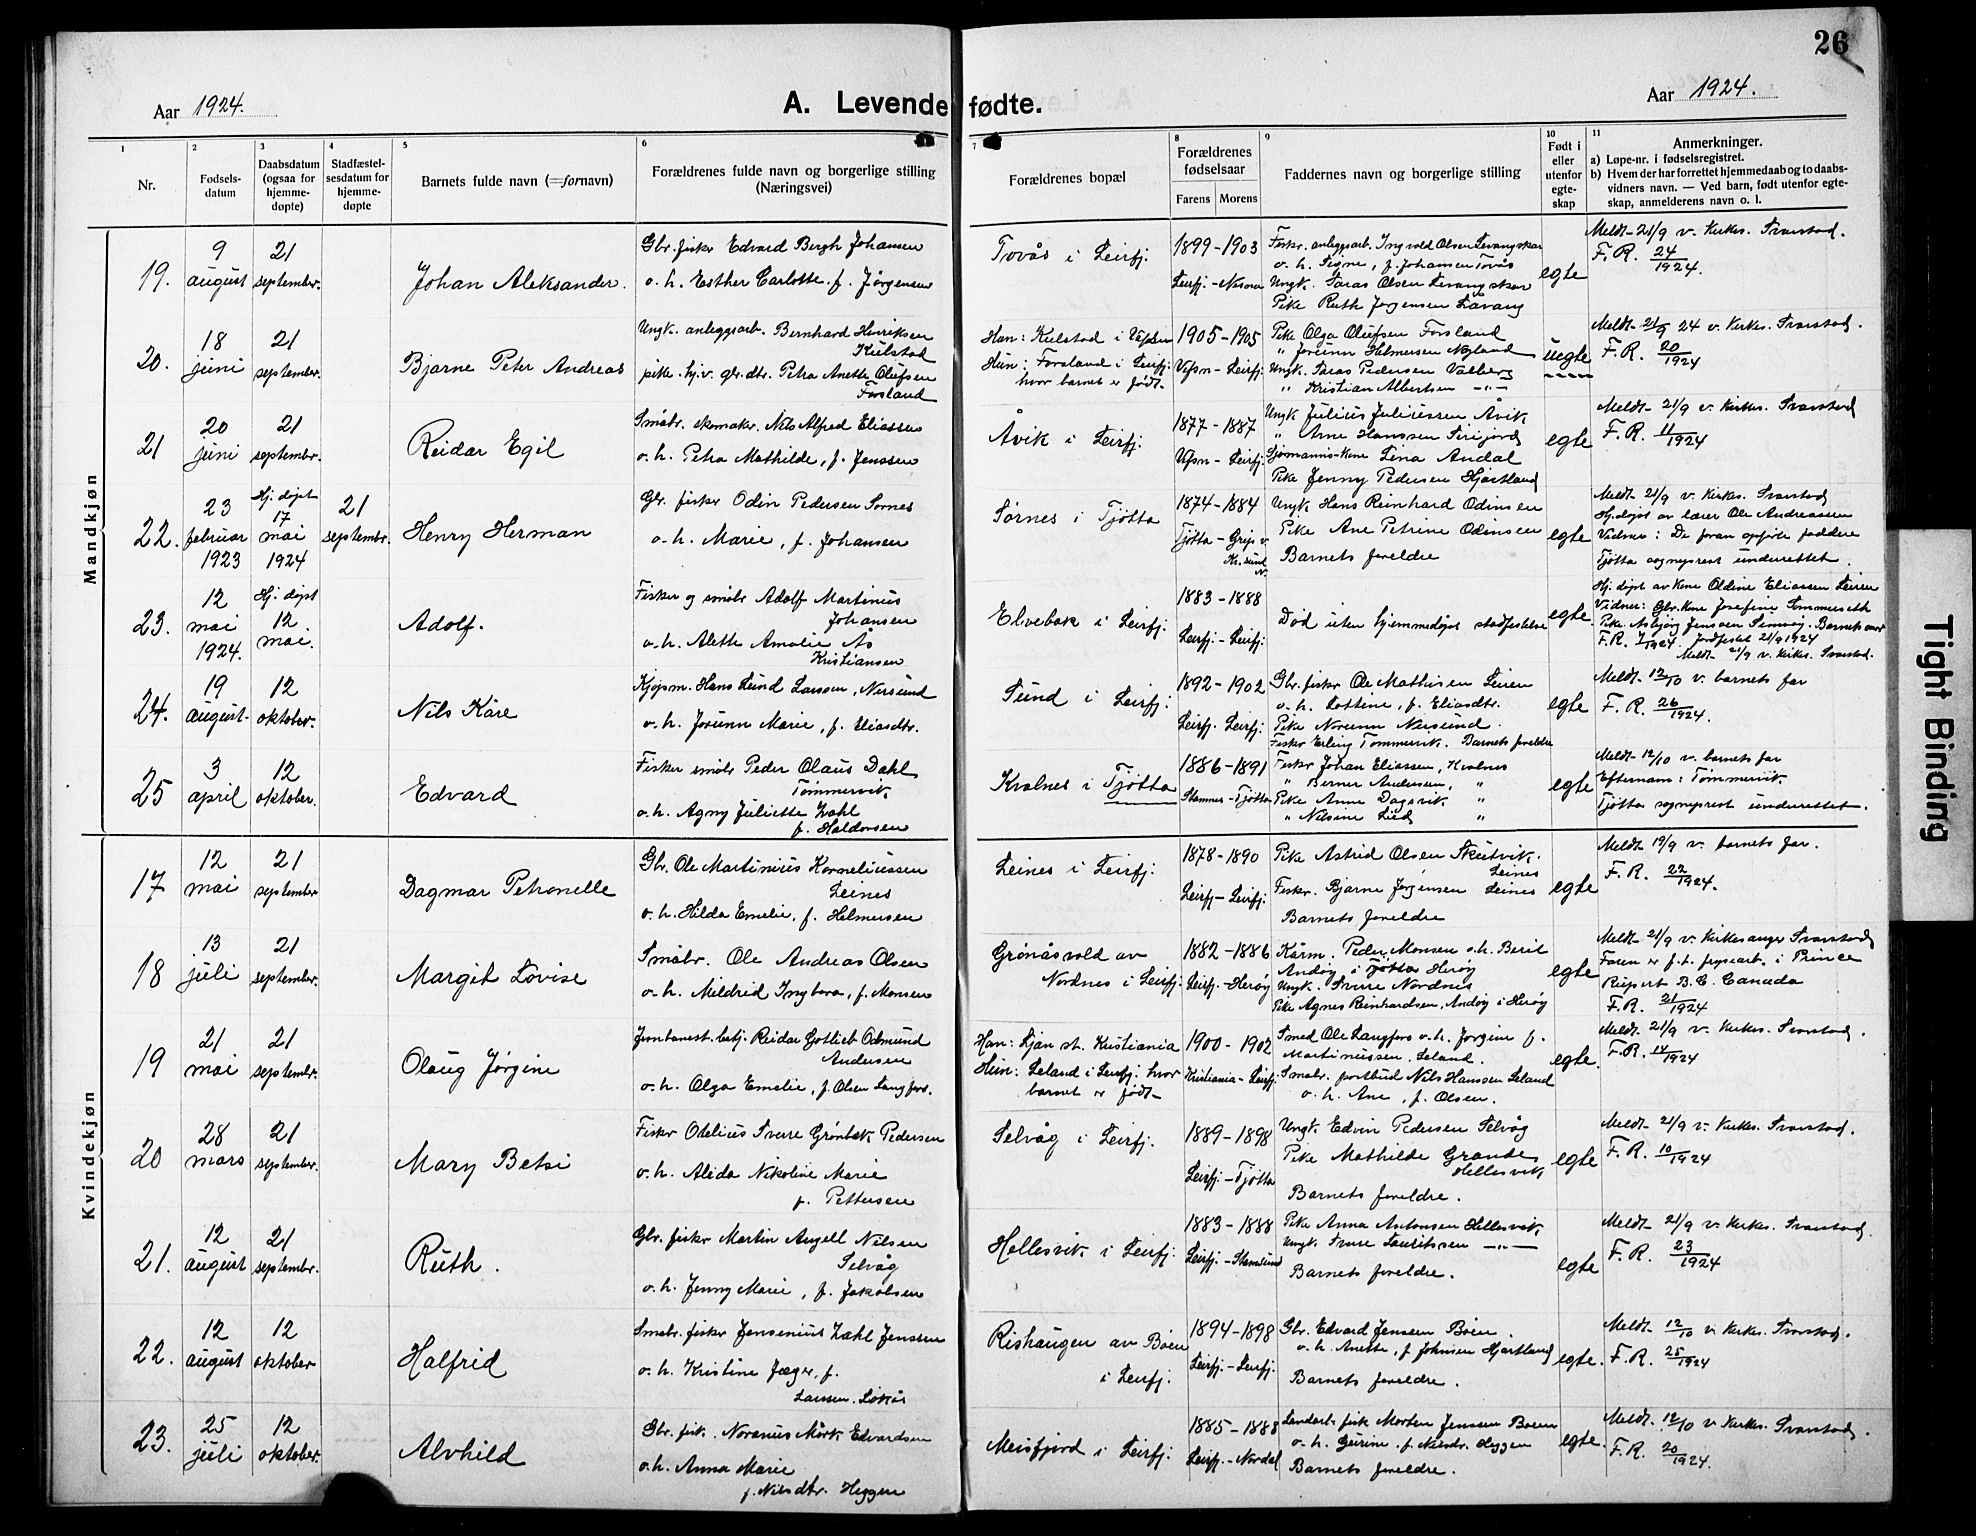 26
Aar 1924.
A. Levende fødte.
Aar 1924.
1
2
3
4
5
6
7
8
9
10
11
Nr.
Fødsels-
datum
Daabsdatum
(ogsaa for
hjemme-
døpte)
Stadfæstel-
sesdatum for
hjemme-
døpte
Barnets fulde navn (=fornavn)
Forældrenes fulde navn og borgerlige stilling
(Næringsvei)
Forældrenes bopæl
Forældrenes
fødselsaar
Farens
Morens
Faddernes navn og borgerlige stilling
Født i
eller
utenfor
egte-
skap
Anmerkninger.
a) Løpe-nr. i fødselsregistret.
b) Hvem der har forrettet hjemmedaab og to daabs-
vidners navn. — Ved barn, født utenfor egte-
skap, anmelderens navn o. l.
Mandkjøn
19.
9
august
21
september.
Johan Aleksander.
Gbr. fisker Edvard Bergh Johansen
o. h. Esther Carlotte. f. Jörgensen
Tovås i Leirfj.
1899-1903
Leirfj. - Nesna
Fisker. anleggsarb. Ingvold Olsen Levangskar
o. h. Signe, f. Johansen Tovås
Ungk. Olsen Levangskar
Pike Ruth Jørgensen
egte
Meldt 21/9 v. Kirkes. Svarstad.
F. R. 24/1924.
20.
18
juni
21
september.
Bjarne Peter Andreas
Ungk. anleggsarb. Bernhard Henriksen
Kulstad
pike. hj.v. gbr.dtr. Petra Anette Olufsen
Forsland
Han: Kulstad i Vefsn
Hun: Forsland i Leirfj:
hvor barnet er født.
1905-1905
Vefsn - Leirfj.
Pike Olga Olufsen Forsland
" Jorunn Helmersen Nyland
Ungk. Pedersen Valberg
" Kristian Albertsen -"-
uegte
Meldt 21/9 24 v. Kirkes. Svarstad.
F. R. 20/1924
21
20
juni
21
september.
Reidar Egil
Småbr. skomaker. Nils Alfred Eliassen
o. h. Petra Mathilde, f. Jenssen
Åvik i Leirfj.
1877-1887
Vefsn - Leirfj.
Ungk Julius Juliussen Åvik
" Arne Hanssen
Sjømanns-Kone Lina Andal
Pike Jenny Pedersen Hjartland
egte
Meldt 21/9 v. Kirkes. Svarstad
F. R. 11/1924
22.
23
februar
1923
Hj. døpt
17
mai
1924
21
september.
Henry Herman
Gbr. fisker Odin Pedersen Sørnes
o. h. Marie, f. Johansen
Sørnes i Tjötta
1874-1884
Tjøtta - Grip v.
Kr.sund
N.
Ungk Hans Reinhard Odinsen
Pike Ane Petrine Odinsen
Barnets foreldre
egte
Meldt 21/9 v. Kirkes. Svarstad
Hj. døpt av lærer Ole Andreassen
Vidner: De foran opførte faddere
Tjøtta sogneprest underrettet.
23.
12
mai
1924.
Hj. døpt
12.
mai.
Adolf.
Fisker og småbr Adolf Martinus
Johansen
o. h. Alette Amalie Ås
Kristiansen
Elvebak i Leirfj.
1883-1888
Leirfj. - Leirfj.
Død uten hjemmedåpst stadfestelse
egte
Hj. døpt av Kone Oldine Eliassen Leiren
Vidner: Gbr. Kone Josefine Sommerseth
Pike. Jenssen
F. R. 7/1924. Jordfestet 21/9 1924
Meldt 21/9 v. Kirkes. Svarstad.
24.
19
august.
12
oktober.
Nils Kåre
Kjøpm. Hans Lund Larssen, Nersund
o. h. Jorunn Marie, f. Eliasdtr.
Sund i Leirfj.
1892-1902
Leirfj. Leirfj.
Gbr. fisker Ole Mathisen Leiren
o. h. Lottine, f. Eliasdtr.
Pike Norunn Nersund
Fisker Erling Tømmervik. Barnets foreldre
egte
Meldt 12/10 v. barnets far
F. R. 26/1924.
25
3
april
12
oktober.
Edvard
Fisker småbr Peder Olaus Dahl
Tömmervik
o. h. Agny Juliette Zahl
f. Haldorsen
Kvalnes i Tjøtta
1886-1891
Stamnes-Tjøtta
Fisker Johan Eliassen, Kvalnes
" Berner Andersen, "
Pike Anne Dagsvik "
" Nilsine "
egte
Meldt 12/10 v. barnets far
Efternavn: Tømmervik
Tjøtta sogneprest underrettet.
Kvindekjøn
17
12
mai
21
september
Dagmar Petronelle
Gbr. Ole Martinius Korneliussen
Leines
o. h. Hilda Emelie, f. Helmersen
Leines i Leirfj.
1878-1890
Leirfj - Leirfj.
Pike Astrid Olsen
Leines
Fisker. Bjarne Jørgensen Leines
Barnets foreldre
egte
Meldt 19/9 v. barnets far.
F. R. 22/1924.
18
13
juli
21
september.
Margit Lovise
Småbr. Ole Andreas Olsen
o. h. Mildrid Ingbora, f. Monsen
Grønåsvold av
Nordnes i Leirfj.
1882-1886
Leirfj. - Herøy
Kårm. Peder Monsen o. h. Berit
Andøy i Tjøtta Herøy
Ungk. Sverre Nordnes
Pike Agnes Reinhardsen, Andøy i Herøy
egte
Meldt 21/9 v. Kirkesanger Svarstad
Faren er f. t. frysearb. i Prince
Rupert B. C. Canada
F. R. 21/1924
19
21
mai
21
september.
Olaug Jørgine
Jernbanest. betj. Reidar Gotlieb Odmund
Andersen
o. h. Olga Emelie, f. Olsen Langfors.
Han: Ljan st. Kristiania
Hun: Leland i Leirfj. hvor
barnet er født.
1900-1902
Kristiania - Leirfj.
Smed Ole Langfors o. h. Jørgine f.
Martinussen. Leland.
Småbr. postbud Nils Hanssen Leland
o. h. Ane, f. Olsen.
egte.
Meldt 21/9 v. Kirkes. Svarstad.
F. R. 14/1924
20
28
mars
21
september.
Mary Betsi
Fisker Otelius Sverre Grønbæk Pedersen
o. h. Alida Nikoline Marie
f. Pettersen
Selvåg i Leirfj.
1889-1898
Leirfj. - Tjøtta
Ungk. Edvin Pedersen Selvåg
Pike Mathilde Grande
Hellesvik
Barnets foreldre.
egte
Meldt 21/9 v. Kirkes. Svarstad.
F. R. 10/1924
21.
12
august
21
september.
Ruth.
Gbr. fisker Martin Angell Nilsen
Selvåg
o. h. Jenny Marie, f. Jakobsen
Hellesvik i Leirfj.
1883-1888
Leirfj. - Stamsund
Pike Anna Antonsen Hellesvik
Ungk. Sverre Lauritssen -"-
Barnets foreldre.
egte
Meldt 21/9 v. Kirkes. Svarstad.
F. R. 23/1924
22.
12
august
12
oktober
Halfrid
Småbr. fisker Jensenius Zahl Jenssen
o. h. Kristine Jæger, f.
Larssen.
Rishaugen av Bøen
i Leirfj.
1894-1898
Leirfj. - Leirfj.
Gbr. Edvard Jenssen Bøen
o. h. Anette, f. Johnsen Hjartland
Barnets foreldre.
egte.
Meldt 12/10 v. Kirkes. Svarstad.
F. R. 25/1924
23.
25
juli
12
oktober.
Alvhild
Gbr. fisk. Noranus Mörk Edvardsen
o. h. Anna Marie
f. Nilsdtr. Heggen
Meisfjord i Leirfj.
1885-1888
Leirfj. - Nordal
Landarb. fisk Morten Jenssen Boen
o. h. Gurine, f. Nilsdr. Heggen
Barnets foreldre.
egte.
Meldt 12/10 v. Kirkes. Svarstad.
F. R. 20/1924.
Tight Binding